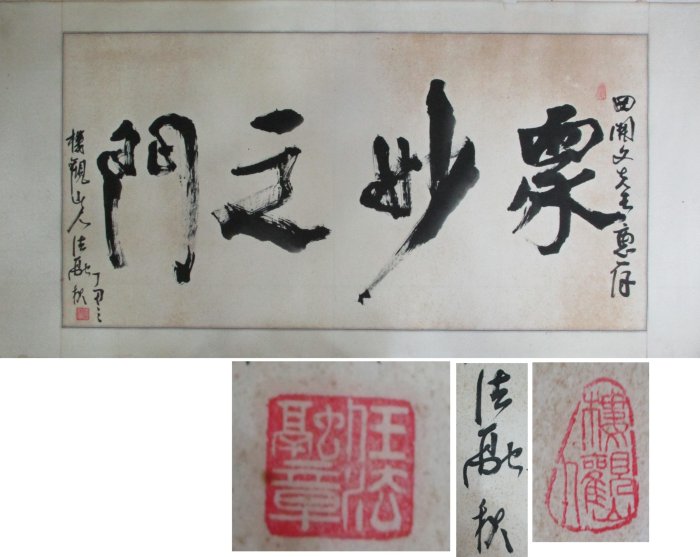 田開文先生惠存
眾妙之門
樓觀山人法融
丁丑之秋
任法融章
法融秋
樓觀山人